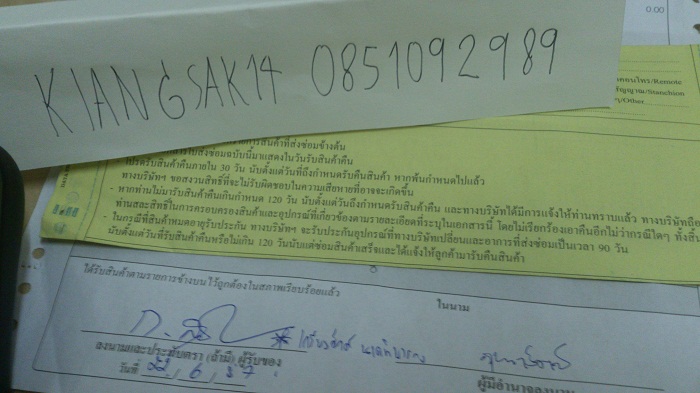 0.00
KIANGSAK14 0851092989
คอนโทร/Remote
ัญญาณ/Stanchion
Other
การสินค้าที่ส่งซ่อมข้างต้น
รับสั่งซ่อมฉบับนี้มาแสดงในวันรับสินค้าคืน
โปรดรับสินค้าคืนภายใน 30 วัน นับตั้งแต่วันที่ถึงกำหนดรับคืนสินค้า หากพ้นกำหนดไปแล้ว
ทางบริษัทฯ ขอสงวนสิทธิ์ที่จะไม่รับผิดชอบในความเสียหายที่อาจจะเกิดขึ้น
- หากท่านไม่มารับสินค้าคืนเกินกำหนด 120 วัน นับตั้งแต่วันถึงกำหนดรับคืนสินค้า และทางบริษัทได้มีการแจ้งให้ท่านทราบแล้ว ทางบริษัทถือ
ท่านสละสิทธิ์ในการครอบครองสินค้าและอุปกรณ์ที่เกี่ยวข้องตามรายละเอียดที่ระบุในเอกสารนี้ โดยไม่เรียกร้องเอาคืนอีกไม่ว่ากรณีใดๆ ทั้งสิ้น
- ในกรณีที่สินค้าหมดอายุรับประกัน ทางบริษัทฯ จะรับประกันอุปกรณ์ที่ทางบริษัทเปลี่ยนและอาการที่ส่งซ่อมเป็นเวลา 90 วัน
นับตั้งแต่วันที่รับสินค้าคืนหรือไม่เกิน 120 วันนับแต่ซ่อมสินค้าเสร็จและได้แจ้งให้ลูกค้ามารับคืนสินค้า
ได้รับสินค้าตามรายการข้างบนไว้ถูกต้องในสภาพเรียบร้อยแล้ว ในนาม
ลงนามและประทับตรา (ถ้ามี) ผู้รับของ ผู้มีอำนาจลงนาม
วันที่ 22 / 6 / 57